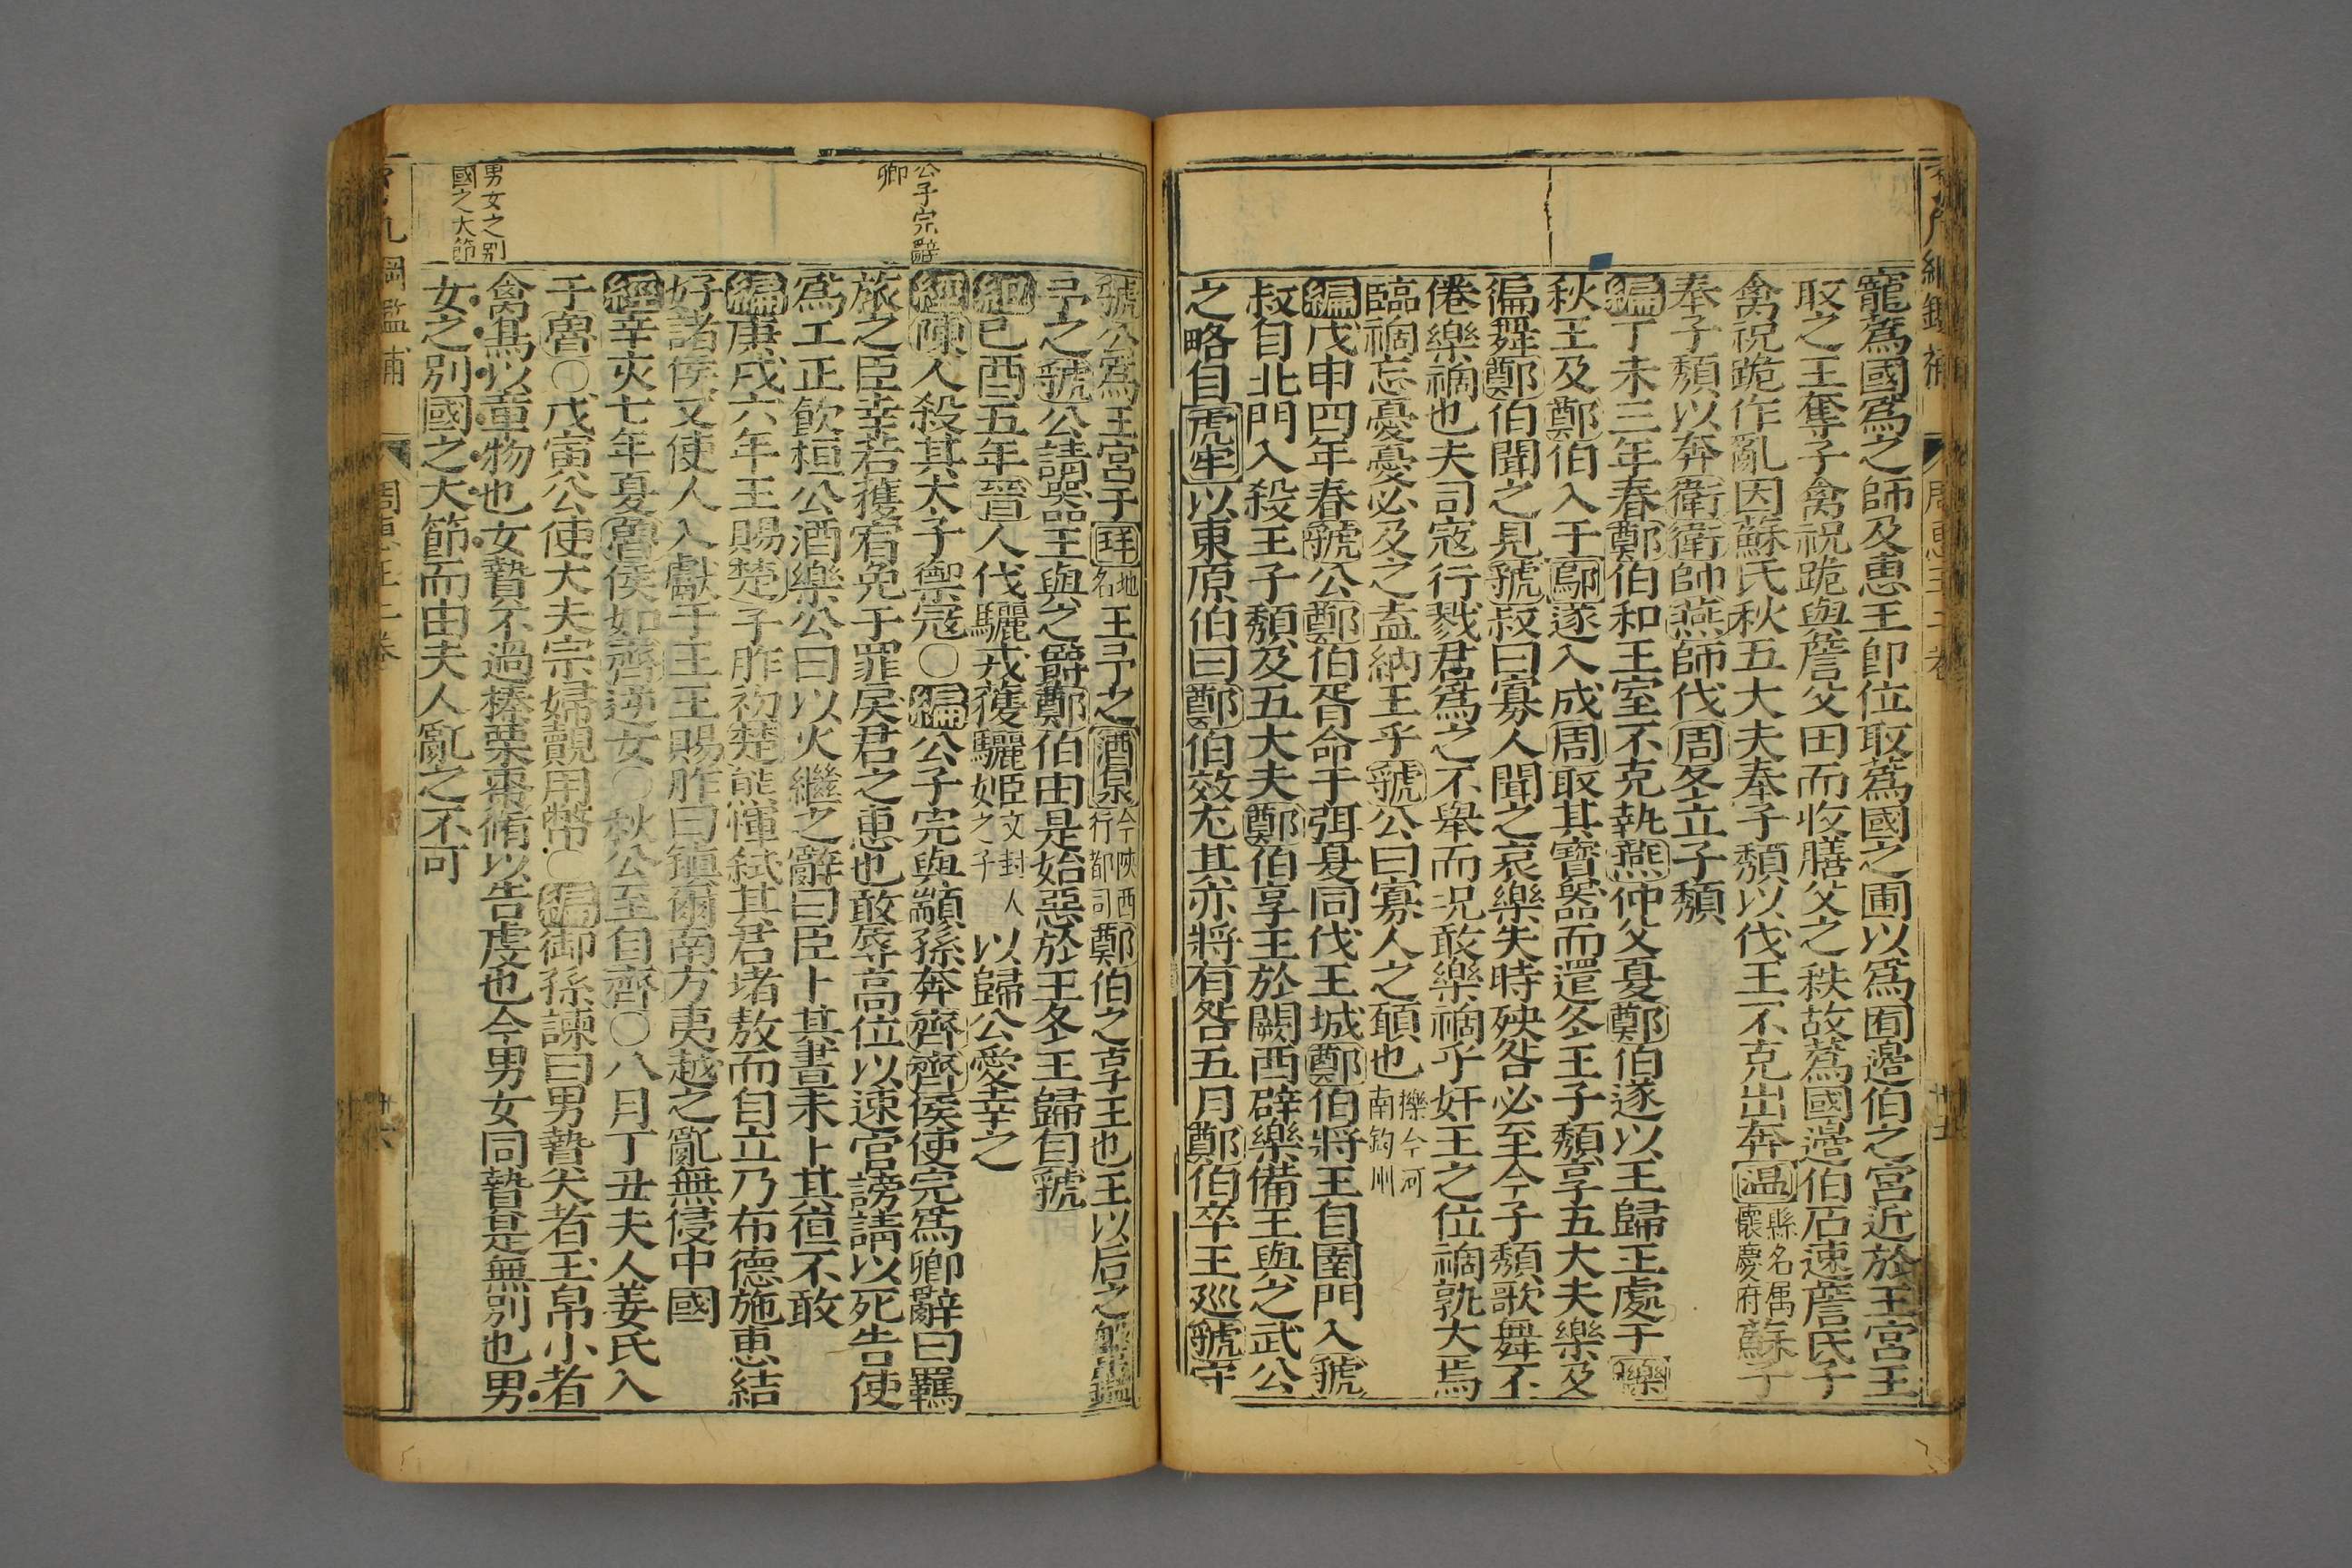 寵蔿國爲之師及惠王卽位取蔿國之圃以爲囿邊伯之宮近於王宮王
取之王奪子禽祝跪與詹父田而收膳父之秩故蔿國邊伯石速詹氏子
禽祝跪作亂因蘇氏秋五大夫奉子頽以伐王不克出奔温縣名属懷慶府蘇子
奉子頽以奔衛衛師燕師伐周冬立子頽
編丁未三年春鄭伯和王室不克執燕仲父夏鄭伯遂以王歸王處于櫟
秋王及鄭伯入于鄔遂入成周取其寶器而還冬王子頽享五大夫樂及
徧舞鄭伯聞之見虢叔曰寡人聞之哀樂失時殃咎必至今子頽歌舞不
倦樂禍也夫司寇行戮君爲之不舉而况敢樂禍乎奸王之位禍孰大焉
臨禍忘憂憂必及之盍納王乎虢公曰寡人之願也櫟今河南鈞州
編戊申四年春虢公鄭伯胥命于弭夏同伐王城鄭伯將王自圉門入虢
叔自北門入殺王子頽及五大夫鄭伯享王於闕西辟樂備王與之武公
之略自虎牢以東原伯曰鄭伯效尤其亦將有咎五月鄭伯卒王廵虢守
虢公爲王宮于玤地名王予之酒泉今陜西行都司鄭伯之享王也王以后之鞶鑑
予之虢公請器王與之爵鄭伯由是始惡於王冬王歸自虢
紀己酉五年晉人伐驪戎獲驪姬文封人之子以歸公愛幸之
公子完辭卿
經陳人殺其太子禦寇〇編公子完與顓孫奔齊齊侯使完爲卿辭曰羈
旅之臣幸若獲宥免于罪戾君之惠也敢辱高位以速官謗請以死告使
爲工正飮桓公酒樂公曰以火繼之辭曰臣卜其晝未卜其夜不敢
編庚戌六年王賜楚子胙初楚熊惲弑其君堵敖而自立乃布德施惠結
好諸侯又使人入獻于王王賜胙曰鎮爾南方夷越之亂無侵中國
經辛亥七年夏魯侯如齊逆女〇秋公至自齊〇八月丁丑夫人姜氏入
于魯〇戊寅公使大夫宗婦覿用幣〇編御孫諫曰男贄大者玉帛小者
男女之别國之大節
禽鳥以章物也女贄不過榛栗棗脩以告虔也今男女同贄是無别也男
女之别國之大節而由夫人亂之不可